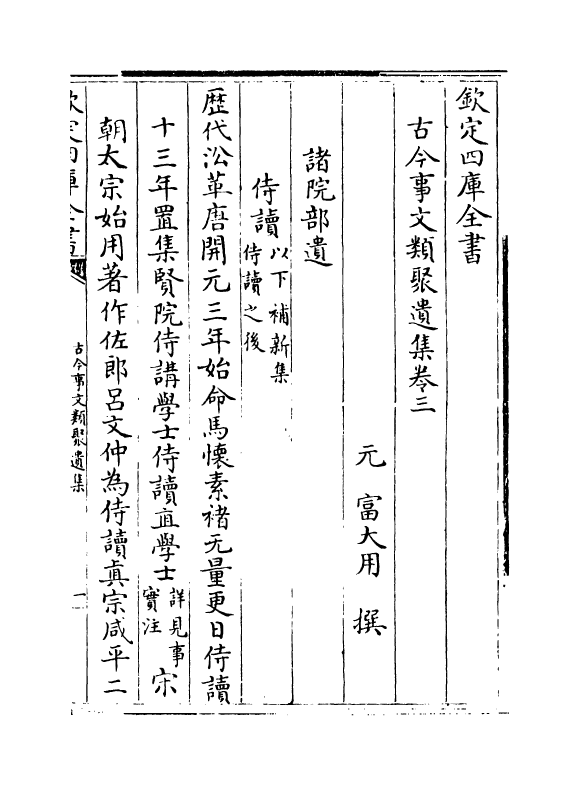 欽定四庫全書
古今事文類聚遺集卷三
元 富大用 撰
諸院部遺
侍讀以下補新集侍讀之後
歴代沿革唐開元三年始命馬懷素褚无量更日侍讀
十三年置集賢院侍講學士侍讀直學士詳見事實注宋
朝太宗始用著作佐郎呂文仲為侍讀真宗咸平二
欽定四庫全書
古今事文類聚遺集
一